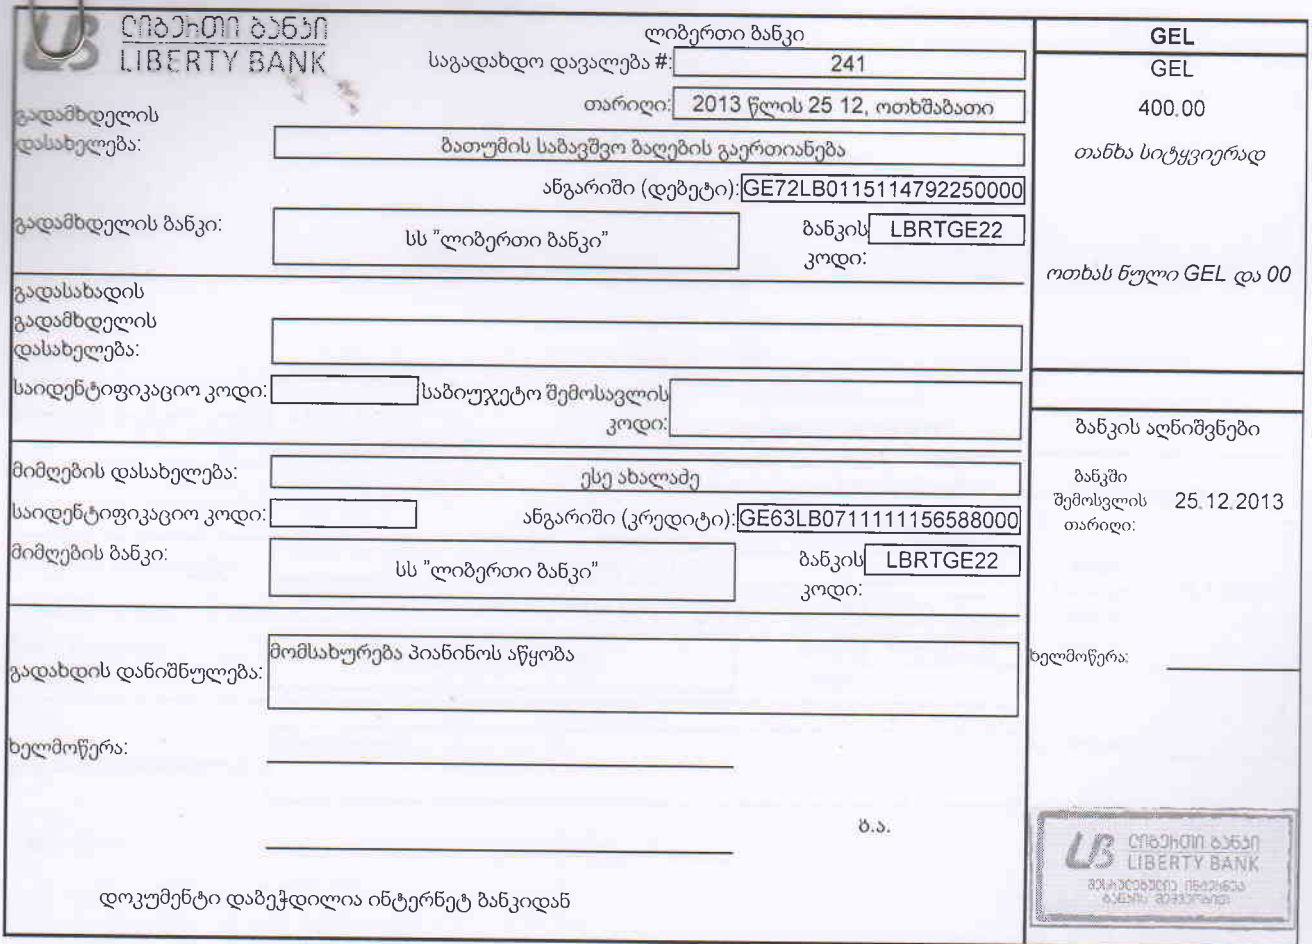 ლიბერთი ბანკი
LIBERTY BANK
ლიბერთი ბანკი
საგადახდო დავალება #: 241
თარიღი: 2013 წლის 25 12, ოთხშაბათი
გადამხდელის
დასახელება: ბათუმის საბავშვო ბაღების გაერთიანება
ანგარიში (დებეტი): GE72LB0115114792250000
გადამხდელის ბანკი: სს "ლიბერთი ბანკი" ბანკის LBRTGE22
კოდი:
გადასახადის
გადამხდელის
დასახელება:
საიდენტიფიკაციო კოდი: საბიუჯეტო შემოსავლის
კოდი:
მიმღების დასახელება: ესე ახალაძე
საიდენტიფიკაციო კოდი: ანგარიში (კრედიტი): GE63LB0711111156588000
მიმღების ბანკი: სს "ლიბერთი ბანკი" ბანკის LBRTGE22
კოდი:
გადახდის დანიშნულება: მომსახურება პიანინოს აწყობა
ხელმოწერა:
ბ.ა.
დოკუმენტი დაბეჭდილია ინტერნეტ ბანკიდან
GEL
GEL
400.00
თანხა სიტყვიერად
ოთხას ნული GEL და 00
ბანკის აღნიშვნები
ბანკში
შემოსვლის 25.12.2013
თარიღი:
ხელმოწერა:
ლიბერთი ბანკი
LIBERTY BANK